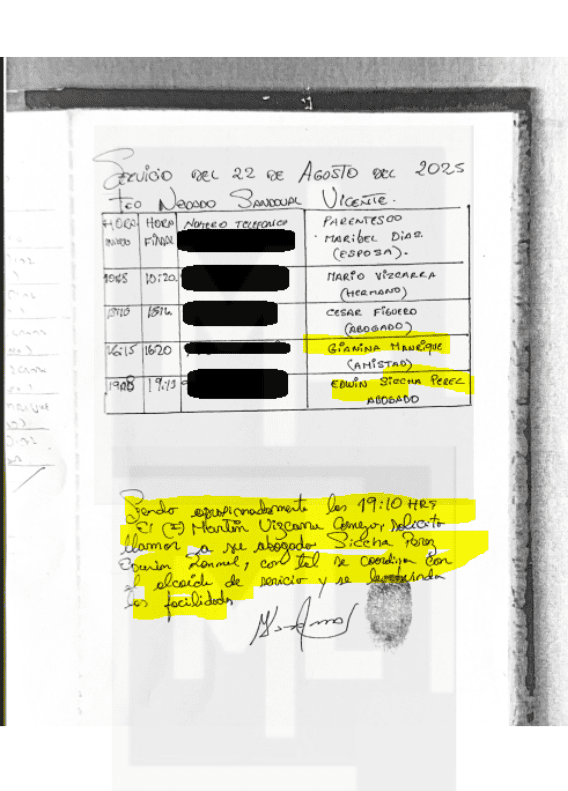 SERVICIO DEL 22 DE AGOSTO DEL 2025
NEGADO SANDOVAL VICENTE.
HORA INICIO HORA FINAL NÚMERO TELEFONICO PARENTESCO
MARIBEL DIAS.
(ESPOSA).
10:20. MARIO VIZCARRA
(HERMANO)
CESAR FIGUERO
(ABOGADO)
16:15 1620 GIANINA MANRIQUE
(AMISTAD)
1908 19:13 EDWIN SICCHA PEREZ
ABOGADO
Siendo aproximadamente las 19:10 HRS
El (I) Martin Vizcarra Cornejo, solicito
llamar a su abogado Siccha Perez
Edwin, con tal se coordina con
el alcaide de servicio y se le brinda
las facilidades